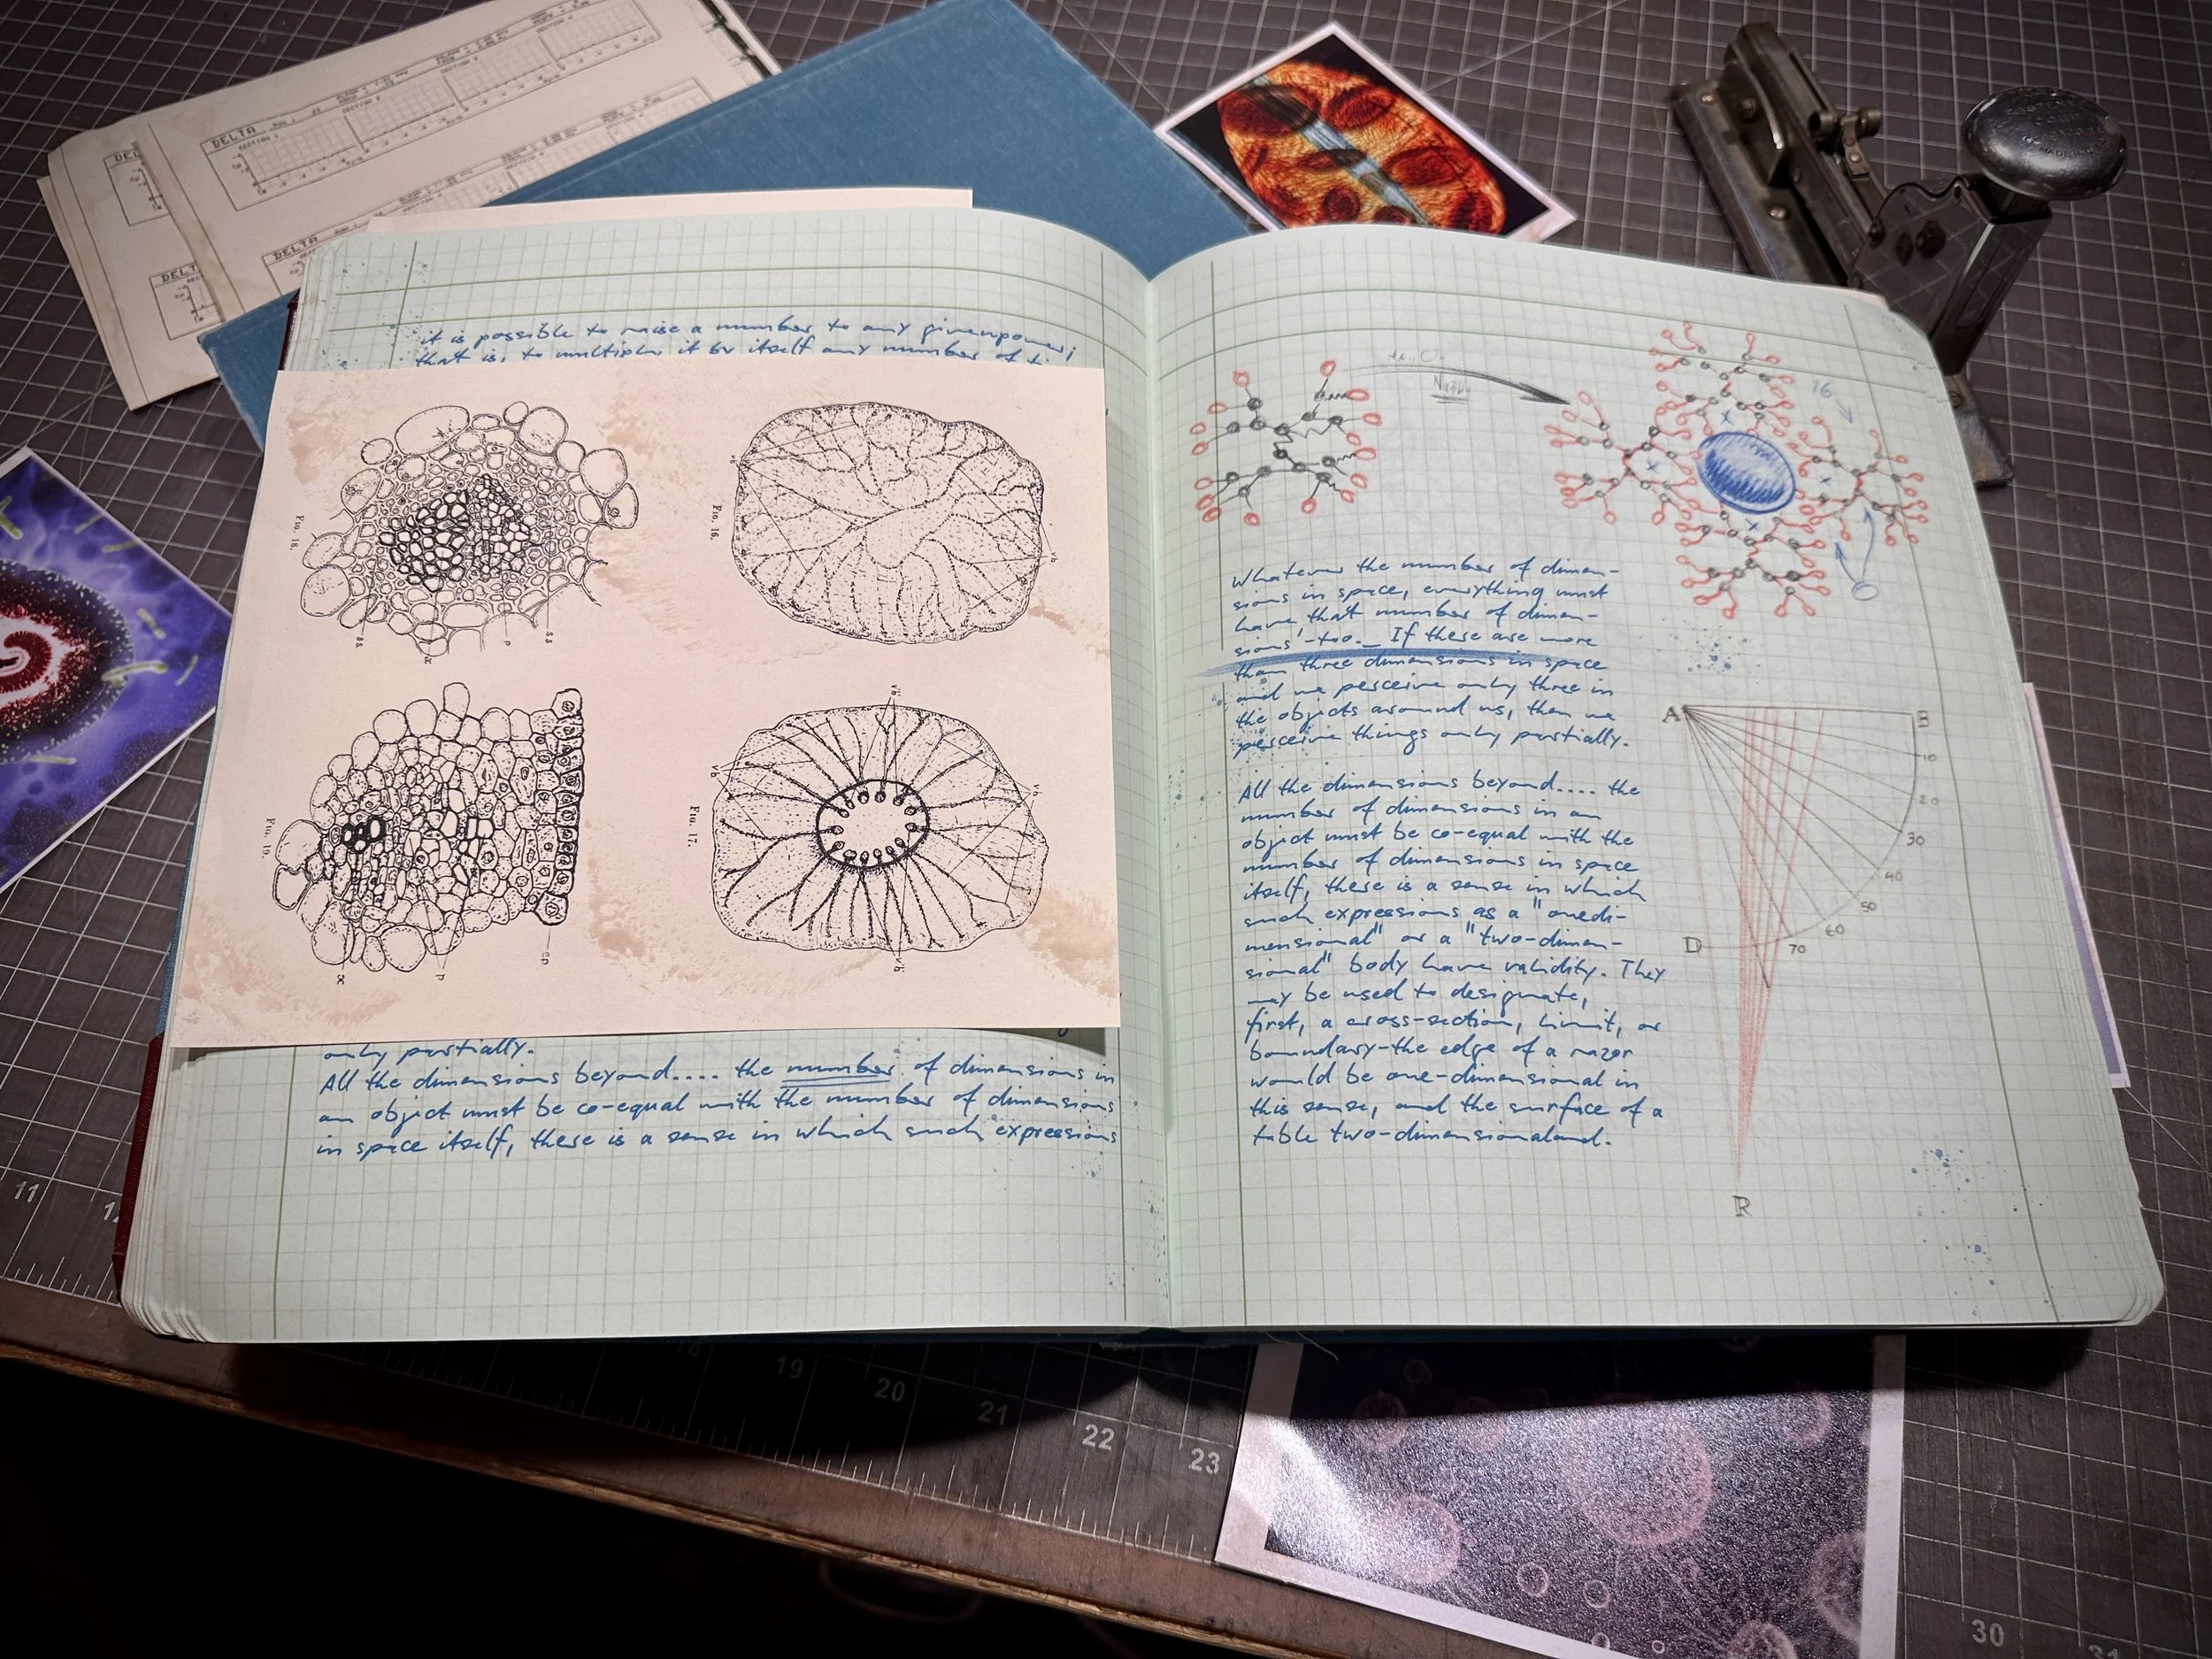 DELTA
SECTION
DELTA
DELTA
it is possible to raise a number to any givenpower;
that is, to multiply it by itself any number of
FIG. 18.
FIG. 16.
FIG. 19.
FIG. 17.
only partially.
All the dimensions beyond.... the number of dimensions in
an object must be co-equal with the number of dimensions
in space itself, there is a sense in which such expressions
16
Whatever the number of dimen-
sions in space, everything must
have that number of dimen-
sions'-too. If there are more
than three dimensions in space
and we perceive only three in
the objects around us, then we
perceive things only partially.
All the dimensions beyond.... the
number of dimensions in an
object must be co-equal with the
number of dimensions in space
itself, there is a sense in which
such expressions as a "onedi-
mensional" or a "two-dimen-
sional" body have validity. They
may be used to designate,
first, a cross-section, limit, or
boundary-the edge of a razor
would be one-dimensional in
this sense, and the surface of a
table two-dimensionaland.
A B
10
20
30
40
50
60
70
D
R
11
18
19
20
21
22
23
30
31